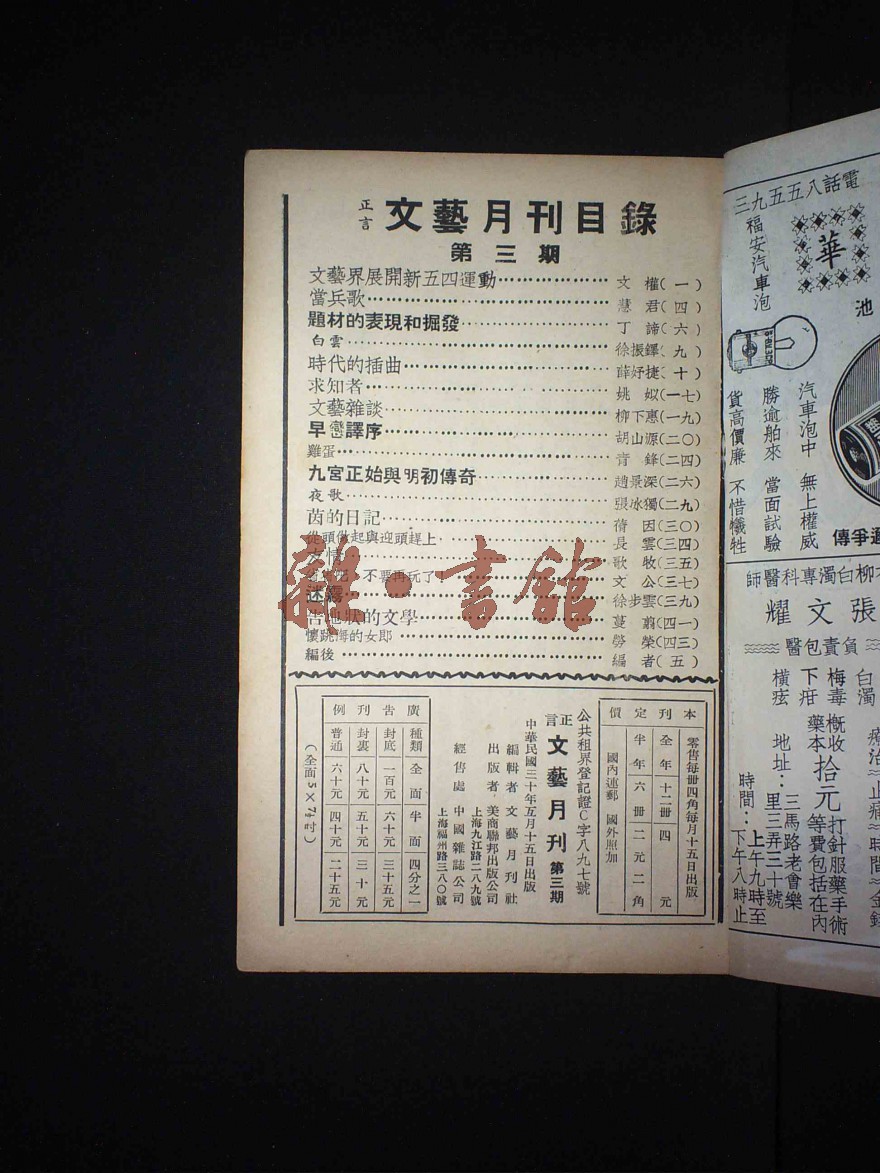 正言 文藝月刊目錄
第三期
文藝界展開新五四運動 文權(一)
當兵歌 慧君(四)
題材的表現和掘發 丁諦(六)
白雲 徐振鐸(九)
時代的插曲 薛妤捷(十)
求知者 姚姒(一七)
文藝雜談 柳下惠(一九)
早戀譯序 胡山源(二〇)
雞蛋 青鋒(二四)
九宮正始與明初傳奇 趙景深(二六)
夜歌 張冰獨(二九)
茵的日記 蒨因(三〇)
從頭做起與迎頭趕上 長雲(三四)
友情 歌牧(三五)
不要再玩了 文公(三七)
迷霧 徐步雲(三九)
告地狀的文學 蔓蒻(四一)
懷跳海的女郎 勞榮(四三)
編後 編者(五)
本刊定價
零售每冊四角每月十五日出版
全年十二冊四元
半年六冊二元二角
國內連郵 國外照加
公共租界登記證C字八九七號
正言 文藝月刊 第三期
中華民國三十年五月十五日出版
編輯者 文藝月刊社
出版者 美商聯邦出版公司
上海九江路二八九號
經售處 中國雜誌公司
上海福州路三八〇號
廣告刊例
種類 全面 半面 四分之一
封底 一百元 六十元 三十五元
封裏 八十元 五十元 三十元
普通 六十元 四十元 二十五元
(全面5×7½吋)
電話八五五九三
福安汽車泡
華
池
汽車泡中 無上權威
勝逾舶來 當面試驗
貨高價廉 不惜犧牲
爭傳
柳白濁專科醫師
張文耀
負責包醫
白濁
梅毒
下疳
橫痃
概收拾元打針服藥手術
藥本等費包括在內
地址：三馬路老會樂
里三弄三十號
時間：上午九時至
下午八時止
雜·書館